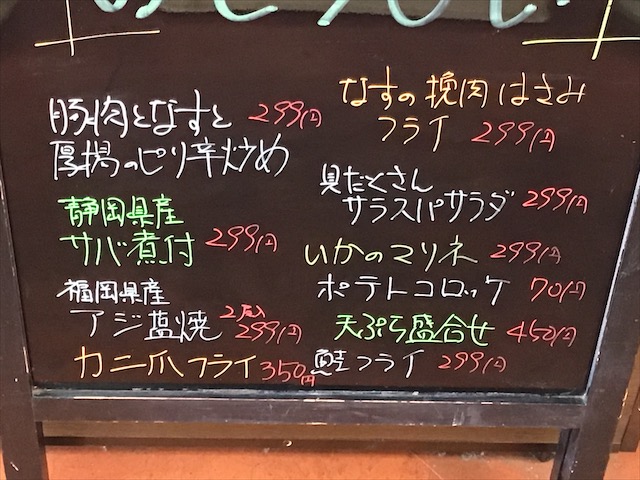 豚肉となすと 299円
厚揚のピリ辛炒め
静岡県産
サバ煮付 299円
福岡県産
アジ塩焼 2尾入 299円
カニ爪フライ 350円
なすの挽肉はさみ
フライ 299円
具だくさん
サラスパサラダ 299円
いかのマリネ 299円
ポテトコロッケ 70円
天ぷら盛合せ 450円
鮭フライ 299円